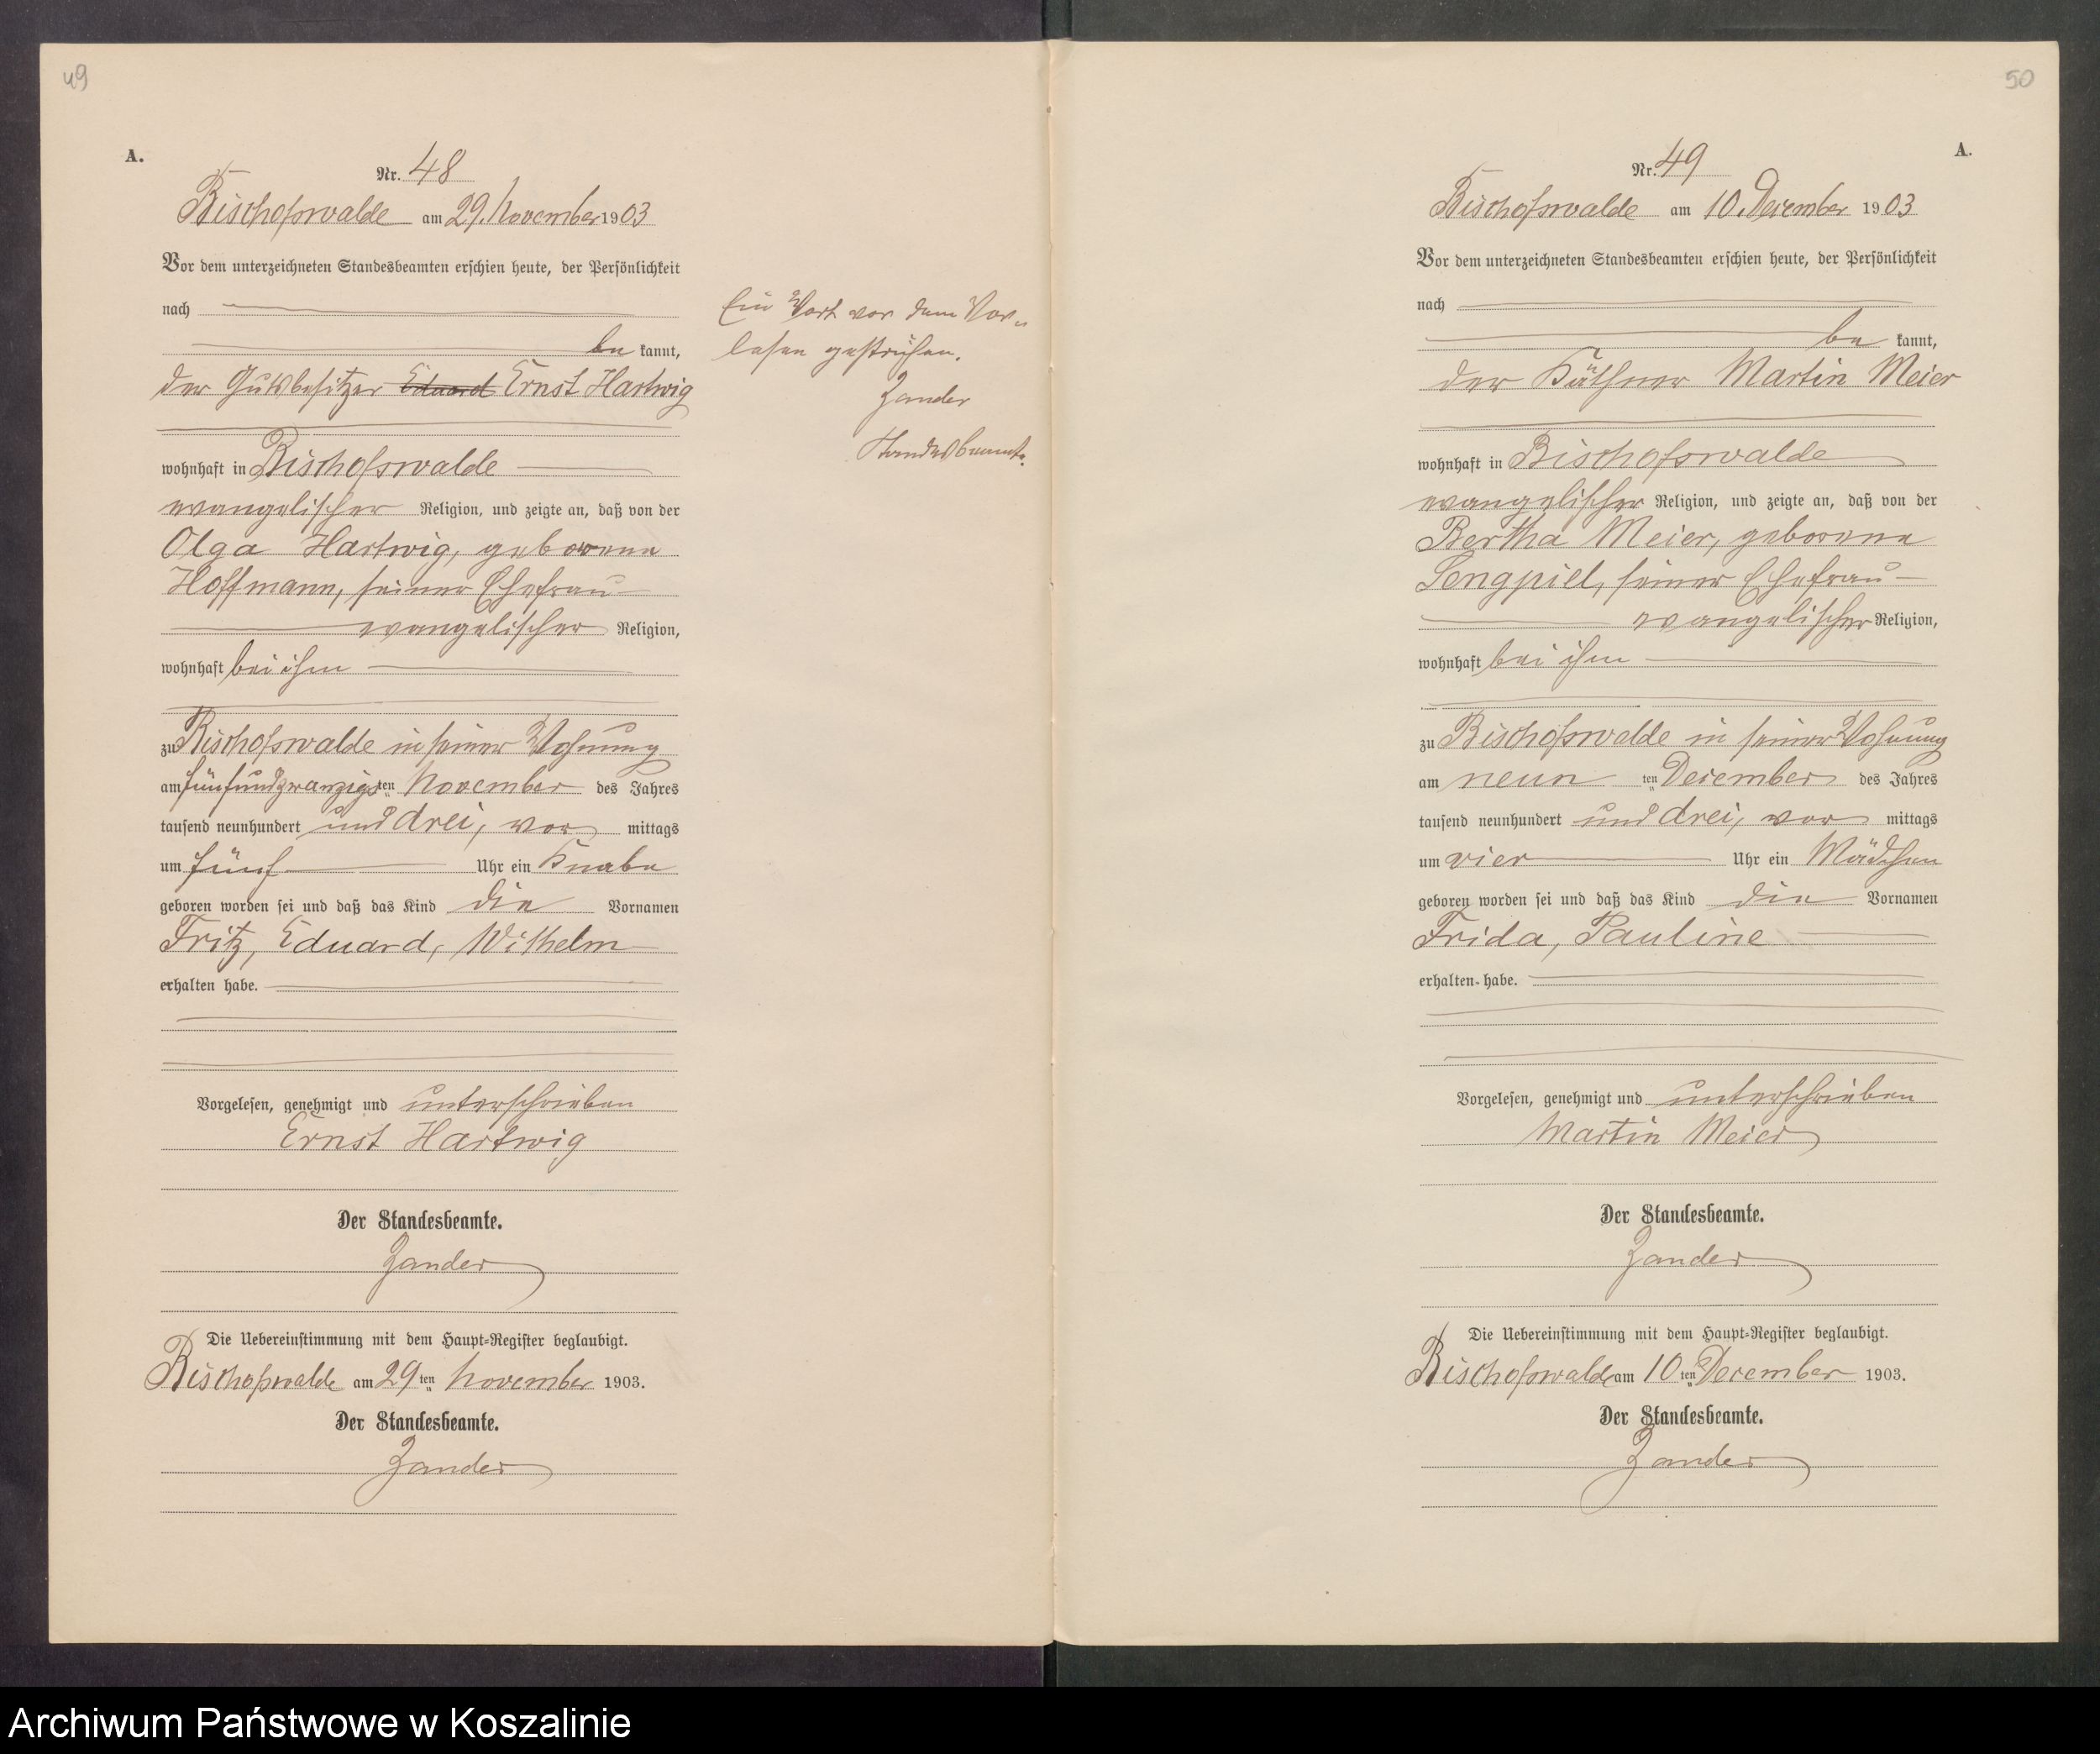 49
A.
Nr. 48
Bischofswalde am 29. November 1903
Vor dem unterzeichneten Standesbeamten erschien heute, der Persönlichkeit
nach
be kannt,
der Gutsbesitzer Eduard Ernst Hartwig
wohnhaft in Bischofswalde
evangelischer Religion, und zeigte an, daß von der
Olga Hartwig, geborene
Hoffmann, seiner Ehefrau
evangelischer Religion,
wohnhaft bei ihm
zu Bischofswalde in seiner Wohnung
am fünfundzwanzigsten November des Jahres
tausend neunhundert und drei, vor mittags
um fünf Uhr ein Knabe
geboren worden sei und daß das Kind die Vornamen
Fritz, Eduard, Wilhelm
erhalten habe.
Vorgelesen, genehmigt und unterschrieben
Ernst Hartwig
Der Standesbeamte.
Zander
Die Uebereinstimmung mit dem Haupt-Register beglaubigt.
Bischofswalde am 29 ten November 1903.
Der Standesbeamte.
Zander
Ein Wort vor dem Vor-
lesen gestrichen.
Zander
Standesbeamte.
50
A.
Nr. 49
Bischofswalde am 10. Dezember 1903
Vor dem unterzeichneten Standesbeamten erschien heute, der Persönlichkeit
nach
be kannt,
der Käthner Martin Meier
wohnhaft in Bischofswalde
evangelischer Religion, und zeigte an, daß von der
Bertha Meier, geborene
Sengpiel, seiner Ehefrau
evangelischer Religion,
wohnhaft bei ihm
zu Bischofswalde in seiner Wohnung
am neun ten Dezember des Jahres
tausend neunhundert und drei, vor mittags
um vier Uhr ein Mädchen
geboren worden sei und daß das Kind die Vornamen
Frida, Pauline
erhalten habe.
Vorgelesen, genehmigt und unterschrieben
Martin Meier
Der Standesbeamte.
Zander
Die Uebereinstimmung mit dem Haupt-Register beglaubigt.
Bischofswalde am 10 ten Dezember 1903.
Der Standesbeamte.
Zander
Archiwum Państwowe w Koszalinie